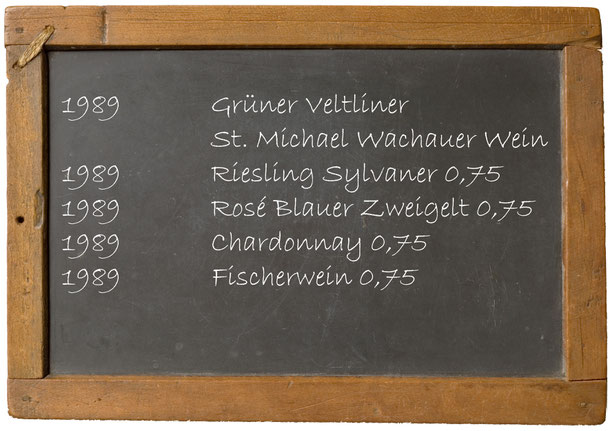 1989 Grüner Veltliner
St. Michael Wachauer Wein
1989 Riesling Sylvaner 0,75
1989 Rosé Blauer Zweigelt 0,75
1989 Chardonnay 0,75
1989 Fischerwein 0,75